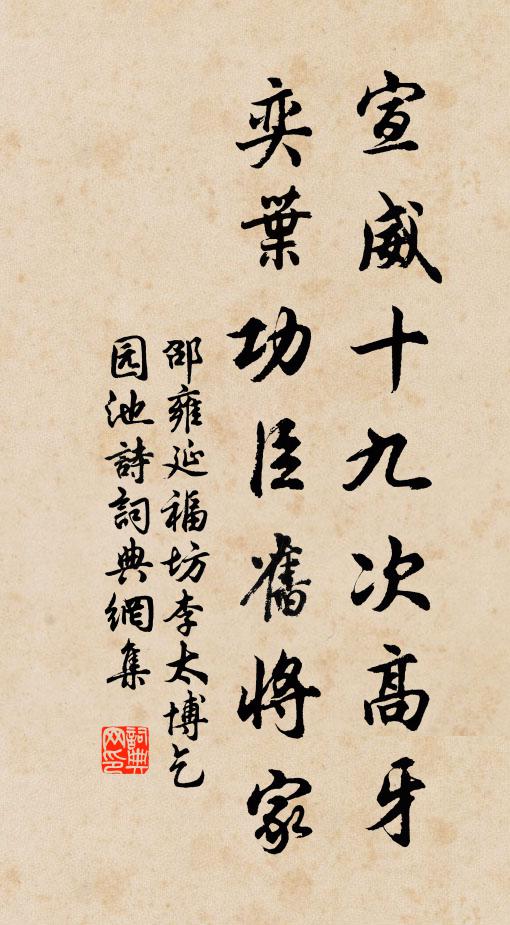 宣威十九次高牙
奕葉功臣舊將家
邵雍延福坊李太博乞
园池詩詞典網集
詞典網印